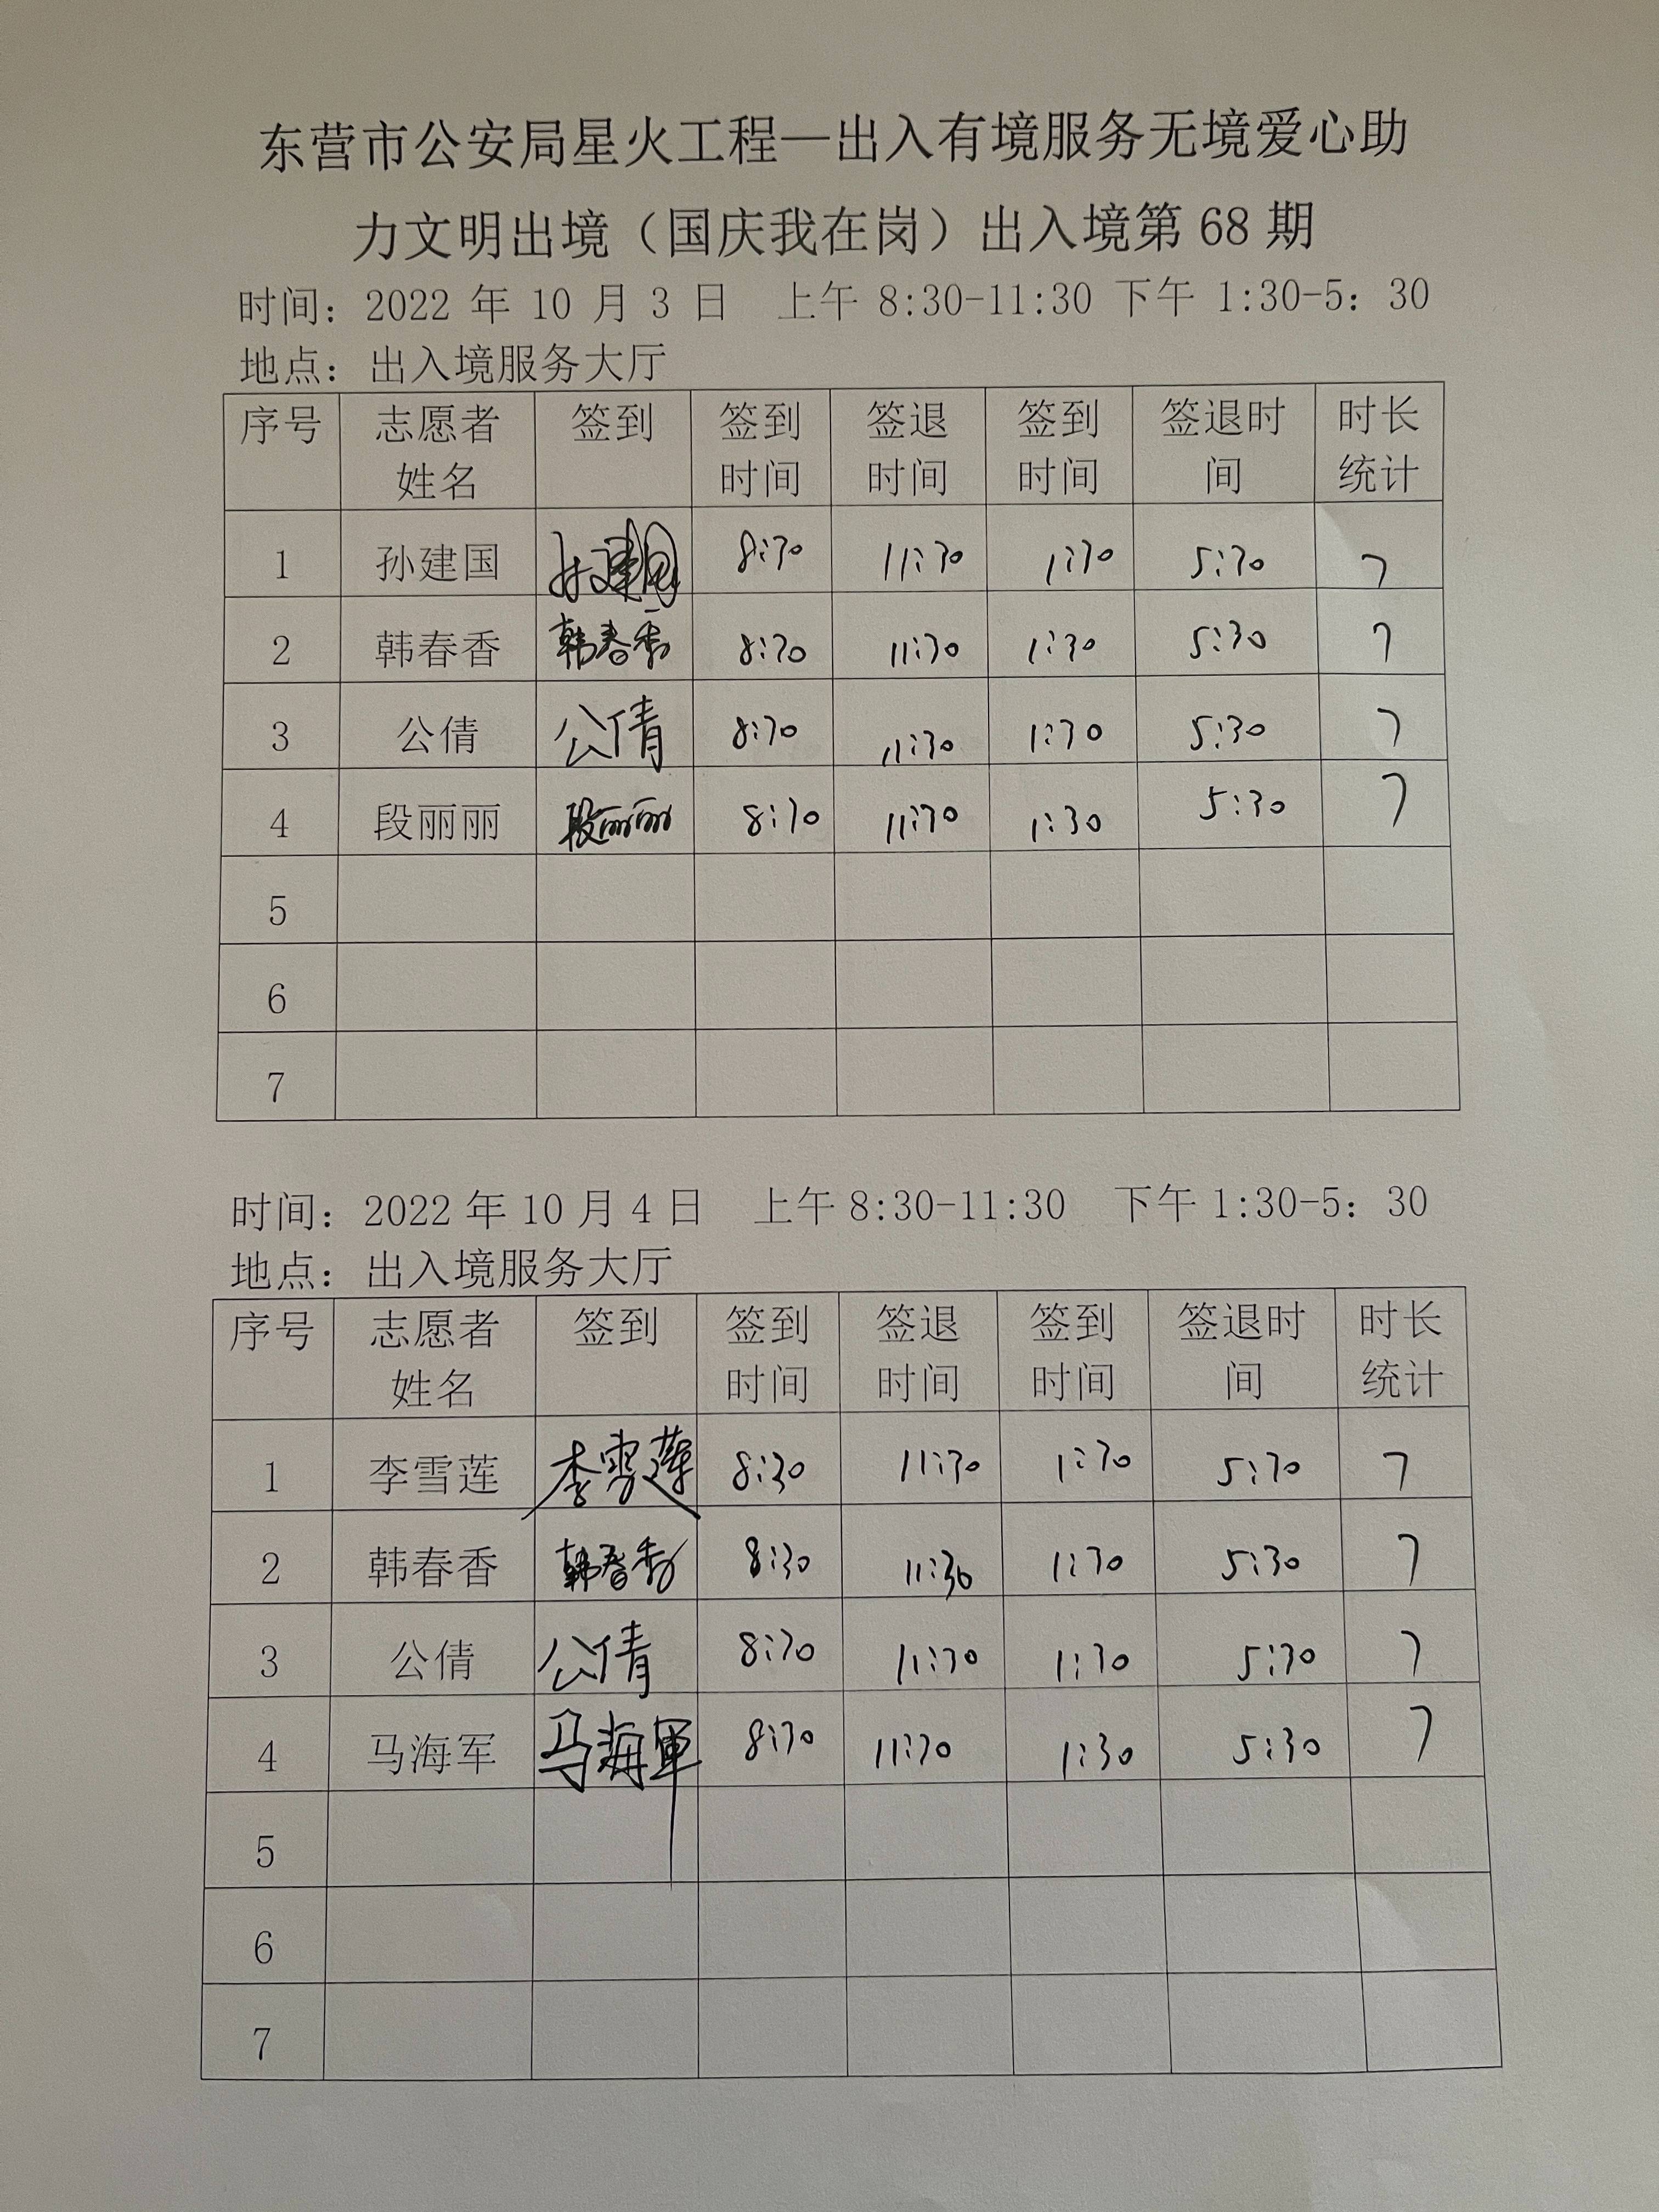 东营市公安局星火工程—出入有境服务无境爱心助
力文明出境（国庆我在岗）出入境第 68 期
时间：2022 年 10 月 3 日 上午 8:30-11:30 下午 1:30-5：30
地点：出入境服务大厅
序号 志愿者姓名 签到 签到时间 签退时间 签到时间 签退时间 时长统计
1 孙建国 孙建国 8:30 11:30 1:30 5:30 7
2 韩春香 韩春香 8:30 11:30 1:30 5:30 7
3 公倩 公倩 8:30 11:30 1:30 5:30 7
4 段丽丽 段丽丽 8:30 11:30 1:30 5:30 7
5
6
7
时间：2022 年 10 月 4 日 上午 8:30-11:30 下午 1:30-5：30
地点：出入境服务大厅
序号 志愿者姓名 签到 签到时间 签退时间 签到时间 签退时间 时长统计
1 李雪莲 李雪莲 8:30 11:30 1:30 5:30 7
2 韩春香 韩春香 8:30 11:30 1:30 5:30 7
3 公倩 公倩 8:30 11:30 1:30 5:30 7
4 马海军 马海軍 8:30 11:30 1:30 5:30 7
5
6
7